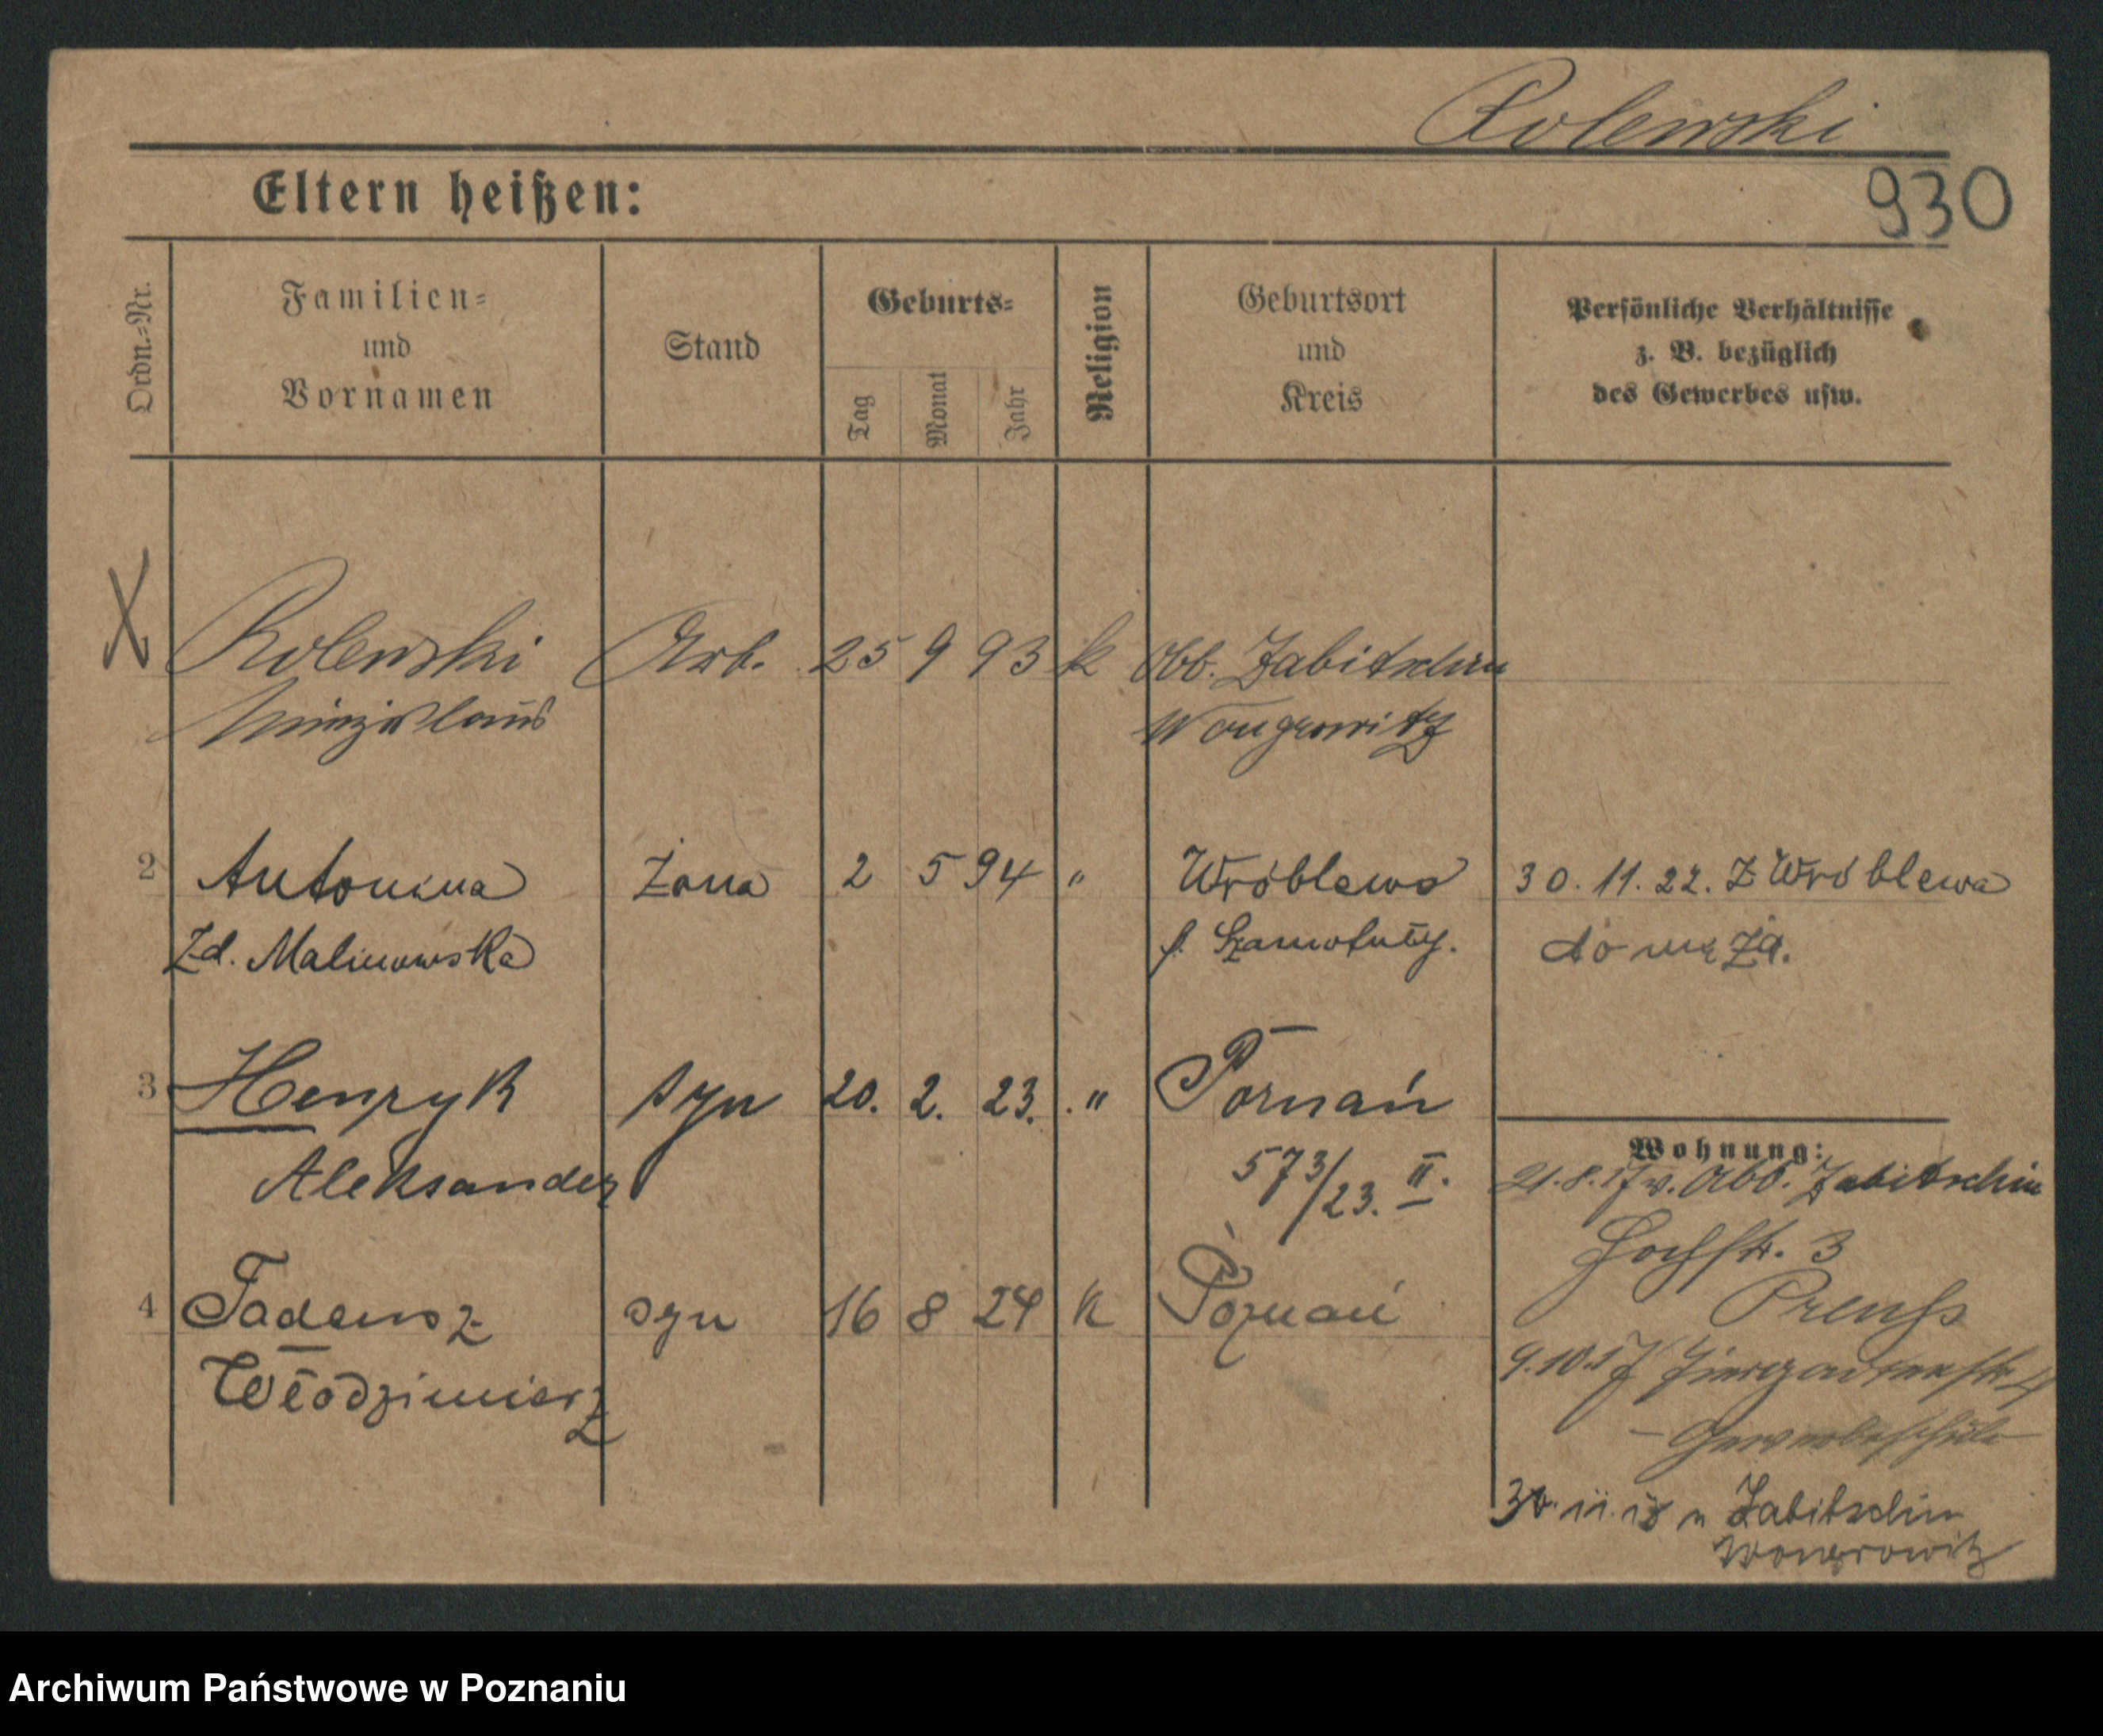 Rolewski
930
Eltern heißen:
Ordn.=Nr.
Familien=
und
Vornamen
Stand
Geburts=
Tag
Monat
Jahr
Religion
Geburtsort
und
Kreis
Persönliche Verhältnisse
z. B. bezüglich
des Gewerbes usw.
X Rolewski Arb. 25 9 93 k Abb. Zabitschin
Wongrowitz
2 Antonina Żona 2 5 94 " Wróblewo 30.11.22. Z Wróblewa
Zd. Malinowska p. Szamotuły. do męża.
3 Henryk syn 20. 2. 23. " Poznań
Aleksander 573/23. II.
4 Tadeusz syn 16 8 24 k Poznań
Włodzimierz
Wohnung:
21.8.17 v. Abb. Zabitschin
Hochstr. 3
Preuß
9.10.17 Tiergartenstr. 4
– Gewerbeschule –
30.11.18 n Zabitschin
Wongrowitz
Archiwum Państwowe w Poznaniu